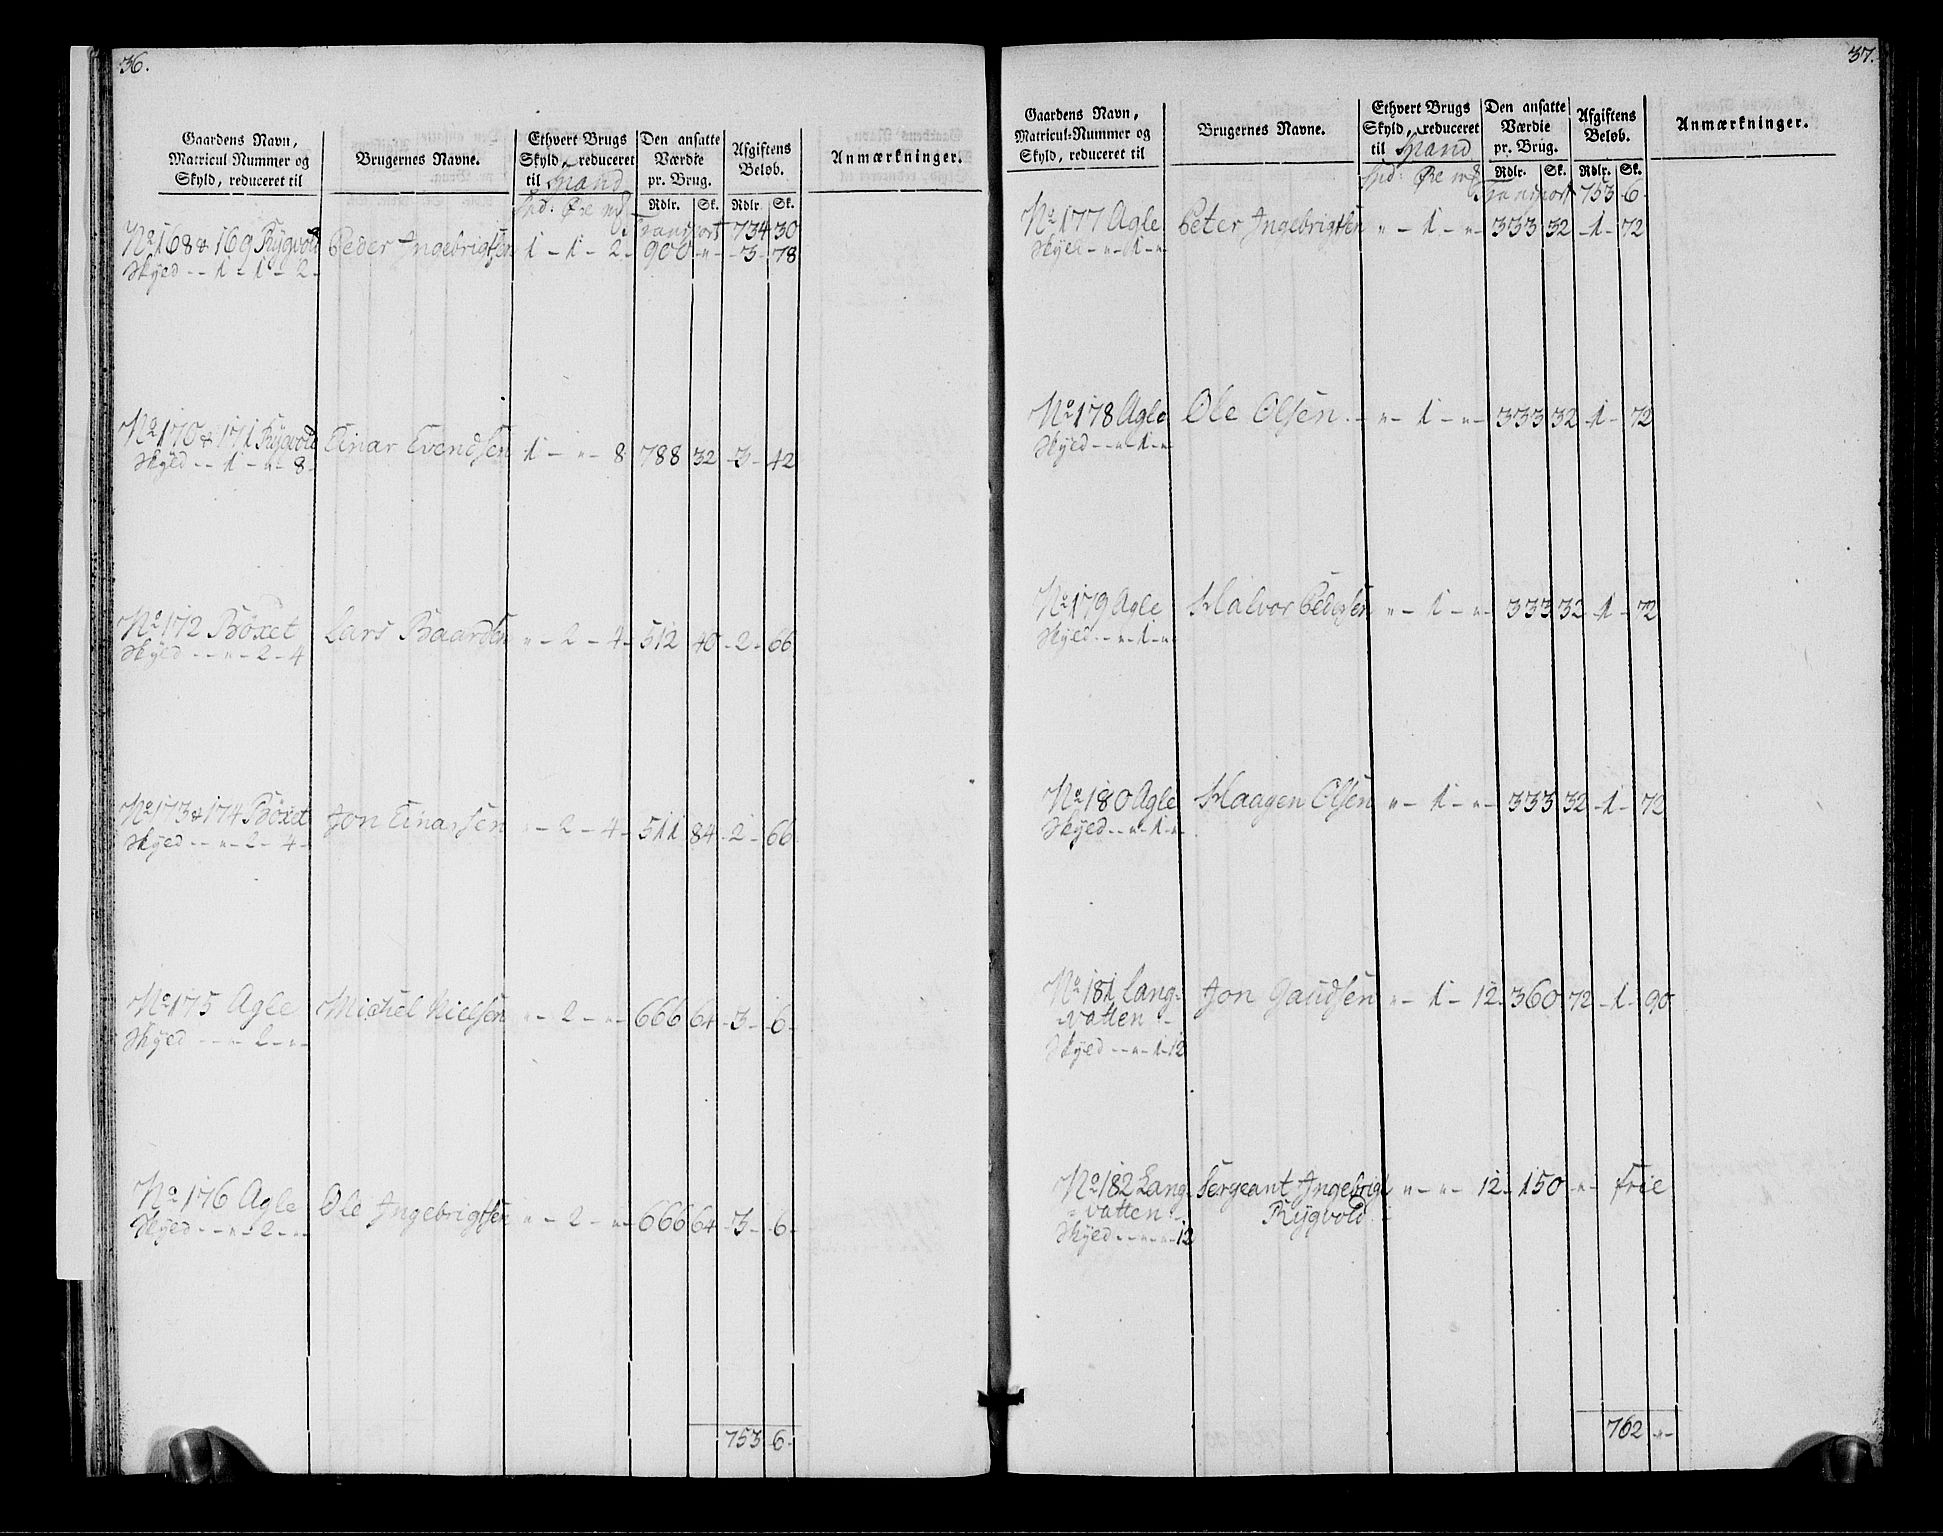 36.
Gaardens Navn, Matricul Nummer og Skyld, reduceret til
Brugernes Navne.
Ethvert Brugs Skyld, reduceret til Spand
Den ansatte Værdie pr. Brug.
Afgiftens Beløb.
Anmærkninger.
Spd: Øre mk
Rdlr. Sk. Rdlr. Sk.
Transport 734 30
No 168 & 169 Rygvold Peder Ingebrigtsen 1 - 1 - 2 - 900 - " - 3 - 78
Skyld - - 1 - 1 - 2 -
No 170 & 171 Rygvold Einar Evendsen 1 - " - 8 788 32 - 3 - 42
Skyld - - 1 - " - 8 -
No 172 Böxet Lars Baardsen " - 2 - 4 - 512 40 - 2 - 66
Skyld - - " - 2 - 4
No 173 & 174 Böxet Jon Einarsen " - 2 - 4 - 511 84 - 2 - 66
Skyld - - " - 2 - 4 -
No 175 Agle Michel Nielsen " - 2 - " - 666 64 - 3 - 6 -
Skyld - - " - 2 - " -
No 176 Agle Ole Ingebrigtsen " - 2 - " - 666 64 - 3 - 6 -
Skyld - - " - 2 - " -
753 6 -
37.
Gaardens Navn, Matricul-Nummer og Skyld, reduceret til
Brugernes Navne.
Ethvert Brugs Skyld, reduceret til Spand
Den ansatte Værdie pr. Brug.
Afgiftens Beløb.
Anmærkninger.
Spd: Øre mk
Rdlr. Sk. Rdlr. Sk.
Transport 753 6 -
No 177 Agle Peter Ingebrigtsen " - 1 - " - 333 32 - 1 - 72
Skyld - " - 1 - "
No 178 Agle Ole Olsen - " - 1 - " - 333 32 - 1 - 72
Skyld - - " - 1 - "
No 179 Agle Halvor Pedersen " - 1 - " - 333 32 - 1 - 72
Skyld - - " - 1 - "
No 180 Agle Haagen Olsen " - 1 - " - 333 32 - 1 - 72
Skyld - - " - 1 - "
No 181 Lang- Jon Gaudsen " - 1 - 12 - 360 72 - 1 - 90
vatten -
Skyld - - " - 1 - 12
No 182 Lang- Sergeant Ingebrigt " - " - 12 - 150 - " - frie
- vatten - Rygvold
Skyld - - " - " - 12
762 - " -